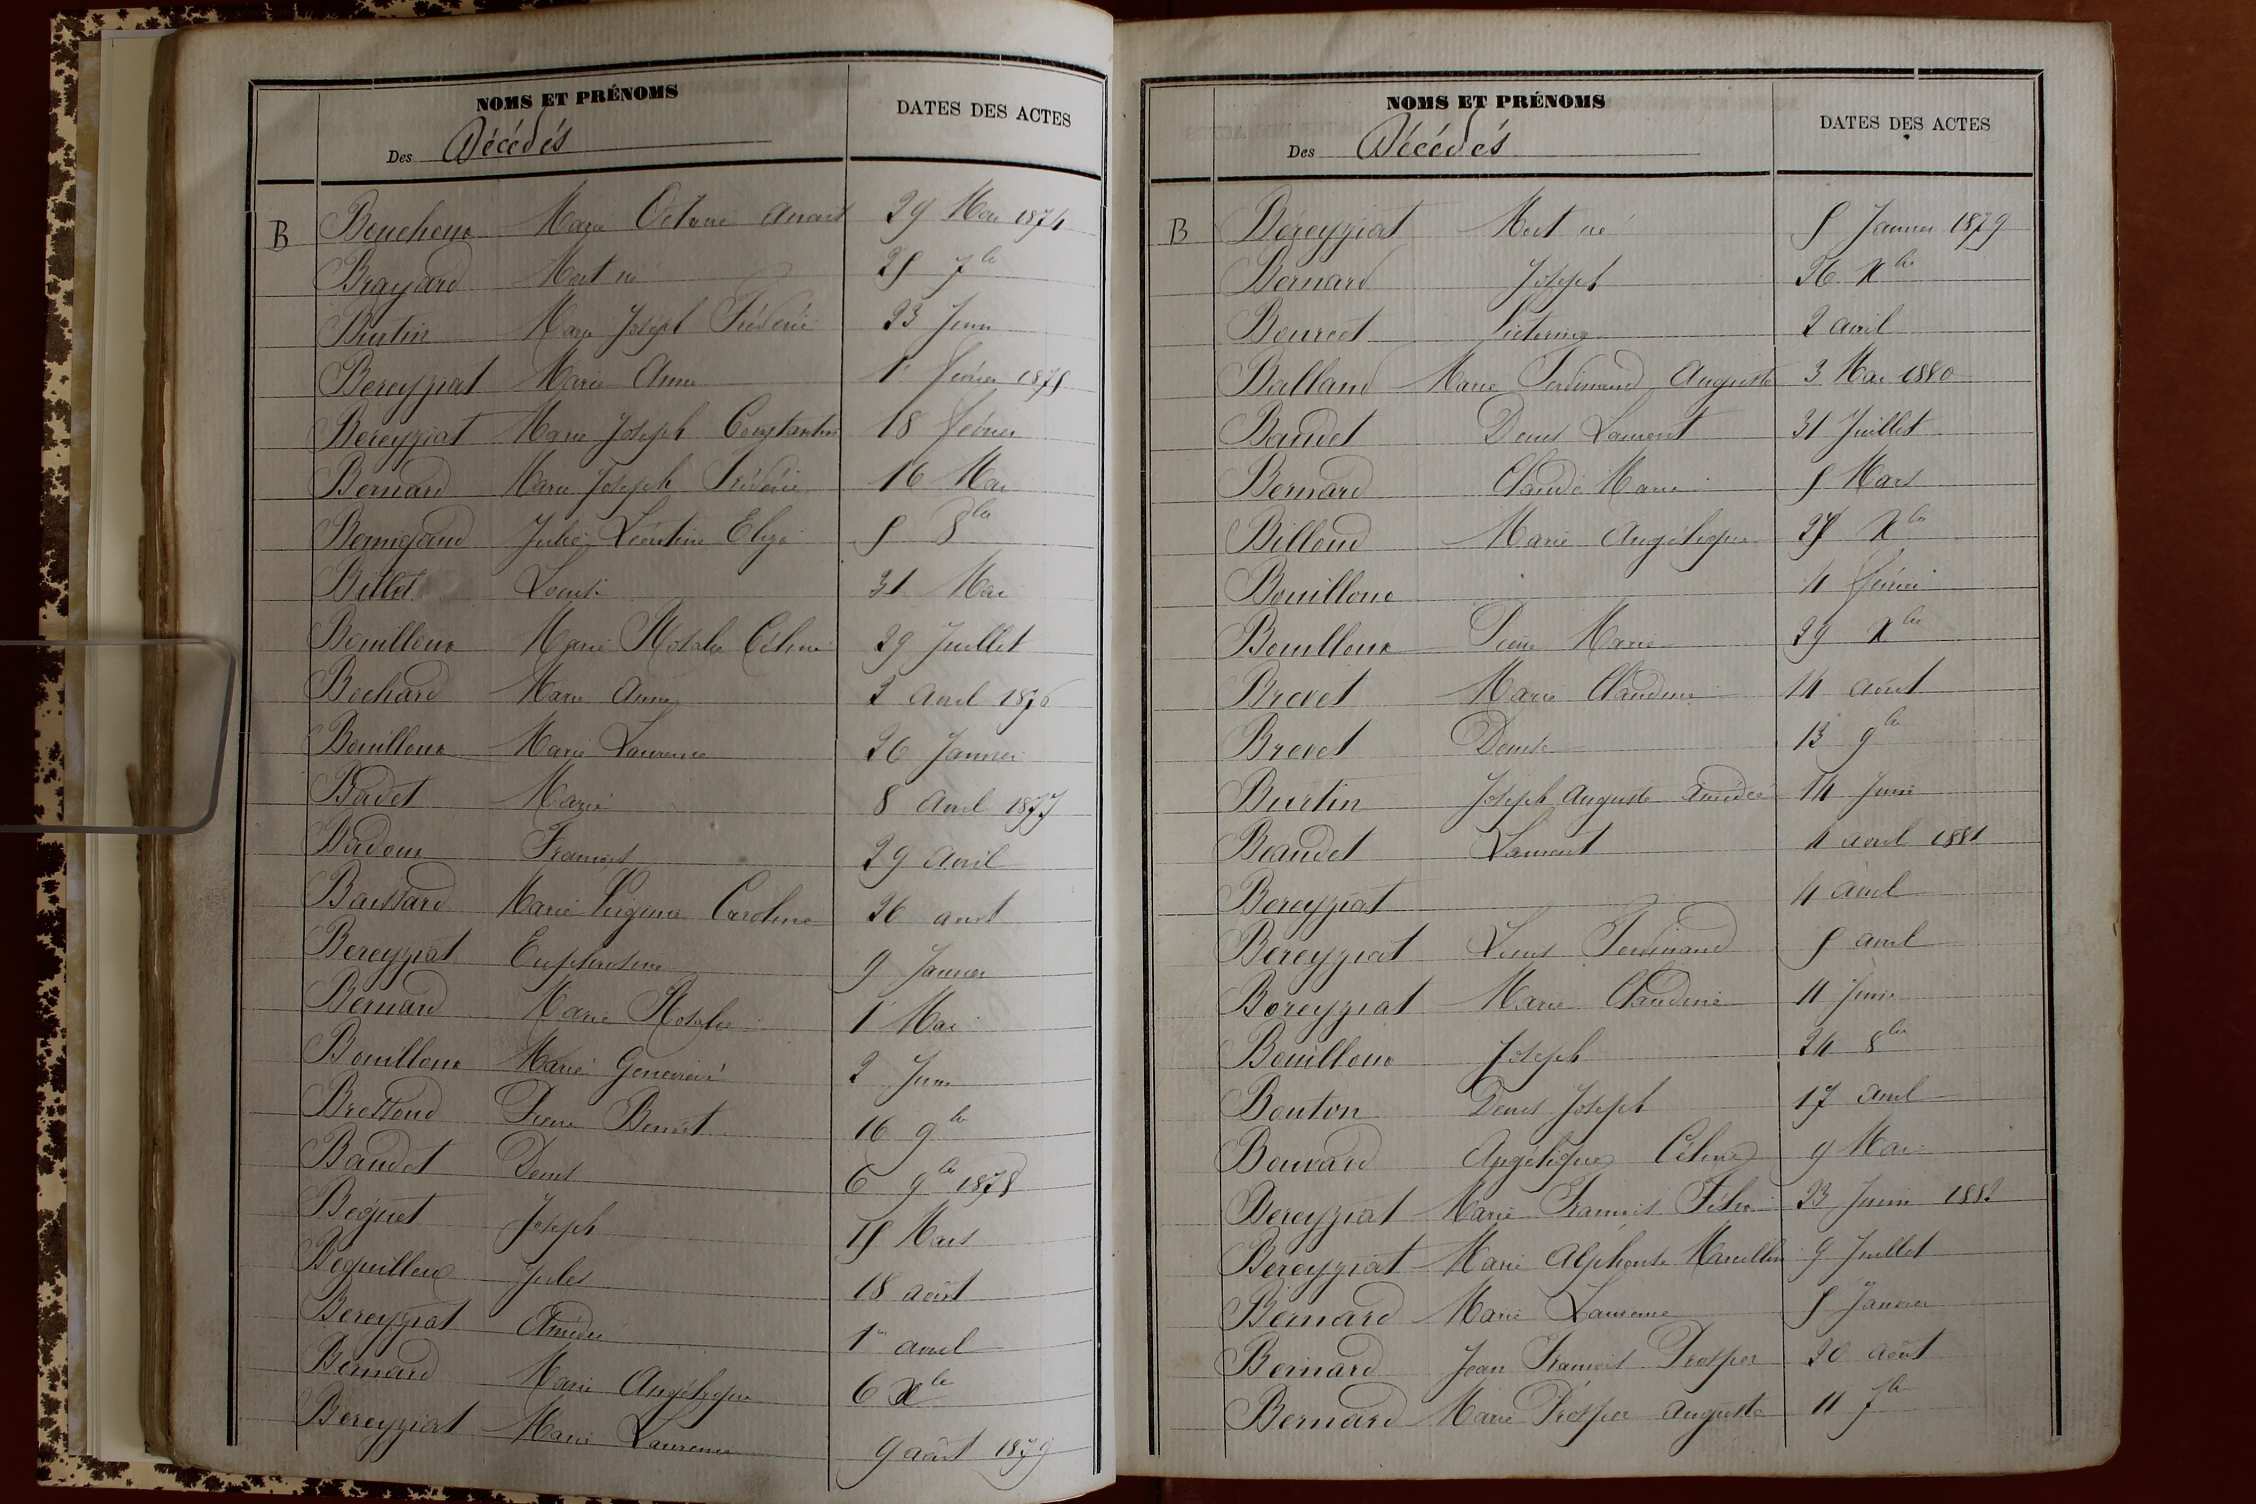 NOMS ET PRÉNOMS
DATES DES ACTES
Des Décédés
B Bouchoux Marie Octavie Anais 29 Mai 1874
Brayard Mort né 25 7bre
Burtin Marie Joseph Frédéric 23 Juin
Bereyziat Marie Anne 1er février 1875
Bereyziat Marie Joseph Constantin 18 février
Bernard Marie Joseph Frédéric 16 Mai
Bernigaud Julie Léontine Eliza 5 8bre
Billet Louis 31 Mai
Bouilloux Marie Rosalie Céline 29 Juillet
Bochard Marie Anne 2 avril 1876
Bouilloux Marie Laurence 26 Janvier
Badet Marie 8 avril 1877
Badoux François 29 avril
Marie Virginie Caroline 26 aout
Bereyziat Euphrosine 9 Janvier
Bernard Marie Rosalie 1er Mai
Bouilloux Marie Geneviève 2 Juin
Bressoud Pierre Benoit 16 9bre
Baudet Denis 6 9bre 1878
Béguet Joseph 15 Mars
Béguilloux Jules 18 août
Bereyziat Amédée 1er avril
Bernard Marie Angélique 6 Xbre
Bereyziat Marie Laurence 9 août 1879
NOMS ET PRÉNOMS
DATES DES ACTES
Des Décédés
B Béreyziat Mort né 5 Janvier 1879
Bernard Joseph 26 Xbre
Bourcet Victorine 2 avril
Balland Marie Ferdinand Auguste 3 Mai 1880
Baudet Denis Laurent 31 Juillet
Bernard Claude Marie 5 Mars
Billoud Marie Angélique 25 Xbre
Bouilloux 4 février
Bouilloux Pierre Marie 29 Xbre
Brevet Marie Claudine 14 août
Brevet Denis 13 9bre
Burtin Joseph Auguste Amédée 14 Juin
Beaudet Laurent 4 avril 1881
Bereyziat 4 avril
Bereyziat Louis Ferdinand 5 avril
Bereyziat Marie Claudine 11 Juin
Bouilloux Joseph 24 8bre
Bouton Denis Joseph 17 avril
Bouvard Angélique Céline 9 Mai
Bereyziat Marie François Félix 23 Juin 1882
Bereyziat Marie Alphonse Marcellin 9 Juillet
Bernard Marie Laurence 5 Janvier
Bernard Jean François Prosper 20 août
Bernard Marie Prosper Auguste 11 7bre